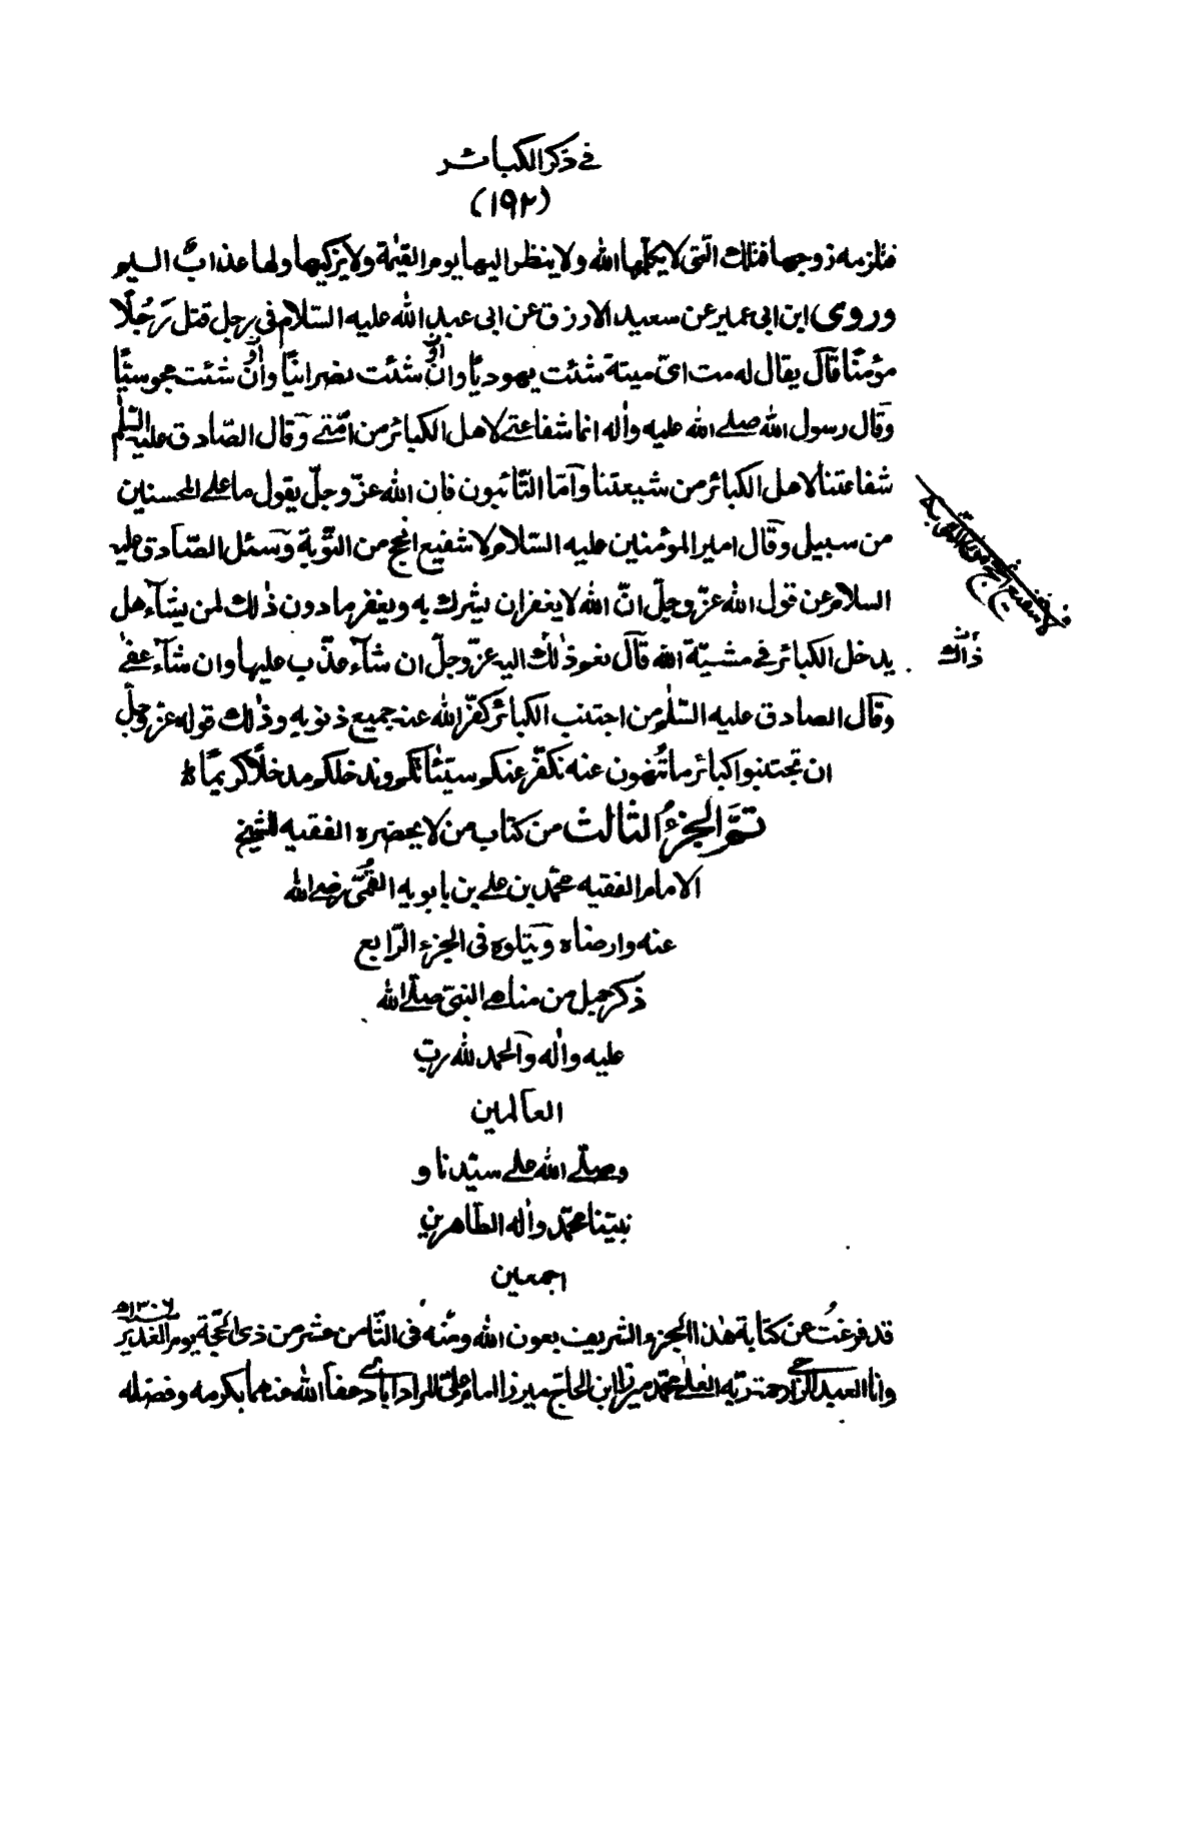 في ذكر الكبائر
(١٩٢)
فتلزمه زوجها فتلك الّتي لا يكلّمها الله ولا ينظر اليها يوم القيٰمة ولا يزكيها ولها عذابٌ اليم
وروى ابن ابي عمير عن سعيد الازرق عن ابي عبد الله عليه السّلام في رجل قتل رَجُلًا
مؤمنًا قال يقال له مت اىّ ميتة شئت يهوديًّا وان شئت نصرانيًّا وان شئت مجوسيًّا
وقال رسول الله صلى الله عليه واٰله انما شفاعتي لاهل الكبائر من امّتي وقال الصّادق عليه السّلم
شفاعتنا لاهل الكبائر من شيعتنا وامّا التّائبون فان الله عزّ وجلّ يقول ما على المحسنين
من سبيل وقال امير المؤمنين عليه السّلام لا شفيع انجح من التّوبة وسئل الصّادق عليه
السلام عن قول الله عزّ وجلّ انّ الله لا يغفر ان يشرك به ويغفر ما دون ذٰلك لمن يشآء هل
يدخل الكبائر في مشيّة الله قال نعم ذٰلك اليه عزّ وجلّ ان شآء عذّب عليها وان شآء عفى
ذاك
وقال الصادق عليه السّلٰم من اجتنب الكبائر كفّر الله عنه جميع ذنوبه وذٰلك قوله عزّ وجلّ
ان تجتنبوا كبائر ما تُنهون عنه نكفّر عنكم سيّئاتكم وندخلكم مدخلًا كريمًا
تمَّ الجزءُ الثالث من كتاب من لا يحضره الفقيه للشيخ
الامام الفقيه محمّد بن علي بن بابويه القُمّي رضي الله
عنه وارضاه ويتلوه في الجزء الرّابع
ذكر جمل من مناهى النبيّ صلّى الله
عليه واٰله والحمد لله ربّ
العالمين
وصلّى الله على سيّدنا و
نبيّنا محمّد واٰله الطّاهرين
اجمعين
قد فرغتُ من كتابة هٰذا الجزء الشريف بعون الله ومنّه في الثّامن عشر من ذي الحجّة يوم الغدير ١٣٠٦ه
وانا العبد الراجي رحمة ربّه محمّد ميرزا ابن الحاج ميرزا عفا الله عنهما بكرمه وفضله